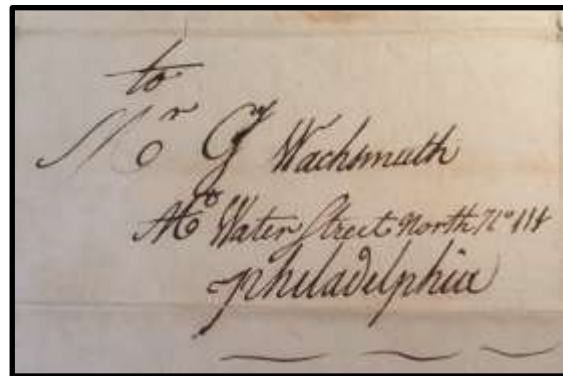 to
Mr G Wachsmuth
Water Street North No 111
Philadelphia